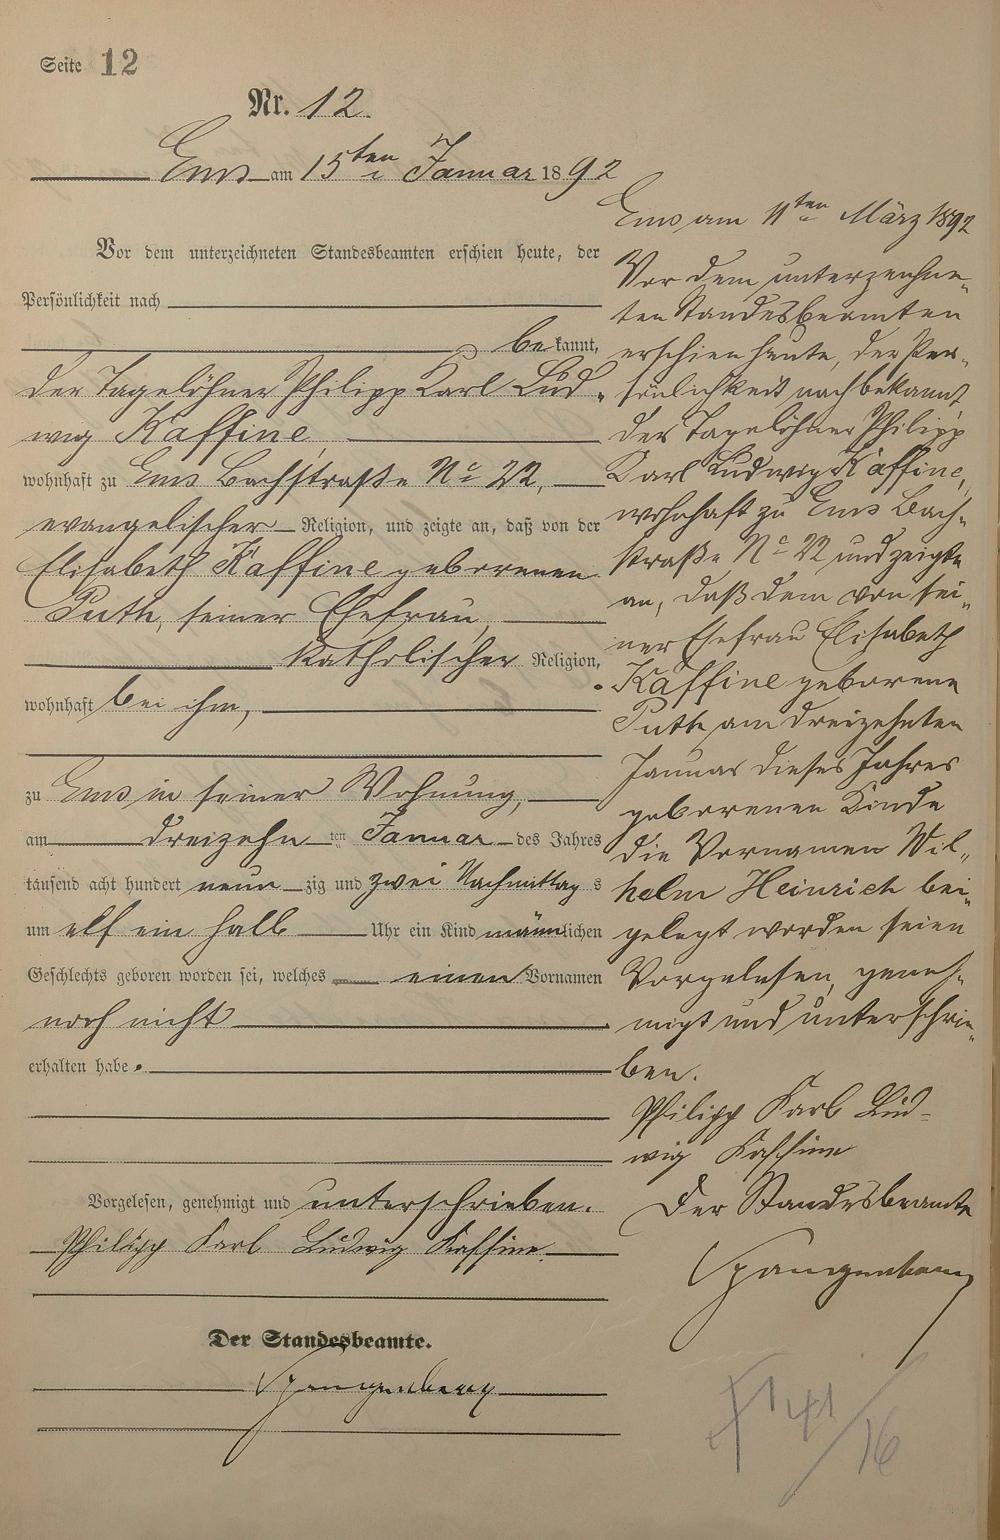 Seite 12
Nr. 12.
Ems am 15ten Januar 1892
Vor dem unterzeichneten Standesbeamten erschien heute, der
Persönlichkeit nach
bekannt,
der Tagelöhner Philipp Karl Lud-
wig Kaffine,
wohnhaft zu Ems Bachstraße No 22,
evangelischer Religion, und zeigte an, daß von der
Elisabeth Kaffine geborenen
Puth, seiner Ehefrau,
katholischer Religion,
wohnhaft bei ihm,
zu Ems in seiner Wohnung,
am dreizehnten Januar des Jahres
tausend acht hundert neunzig und zwei Nachmittags
um elf ein halb Uhr ein Kind männlichen
Geschlechts geboren worden sei, welches einen Vornamen
noch nicht
erhalten habe.
Vorgelesen, genehmigt und unterschrieben.
Philipp Karl Ludwig Kaffine
Der Standesbeamte.
Spangenberg
Ems am 11ten März 1892
Vor dem unterzeichne-
ten Standesbeamten
erschien heute, der Per-
sönlichkeit nach bekannt
der Tagelöhner Philipp
Karl Ludwig Kaffine,
wohnhaft zu Ems Bach-
straße No 22 und zeigte
an, daß dem von sei-
ner Ehefrau Elisabeth
Kaffine geborene
Puth am dreizehnten
Januar dieses Jahres
geborenen Kinde
die Vornamen Wil-
helm Heinrich bei-
gelegt worden seien
Vorgelesen, geneh-
migt und unterschrie-
ben.
Philipp Karl Lud-
wig Kaffine
Der Standesbeamte
Spangenberg